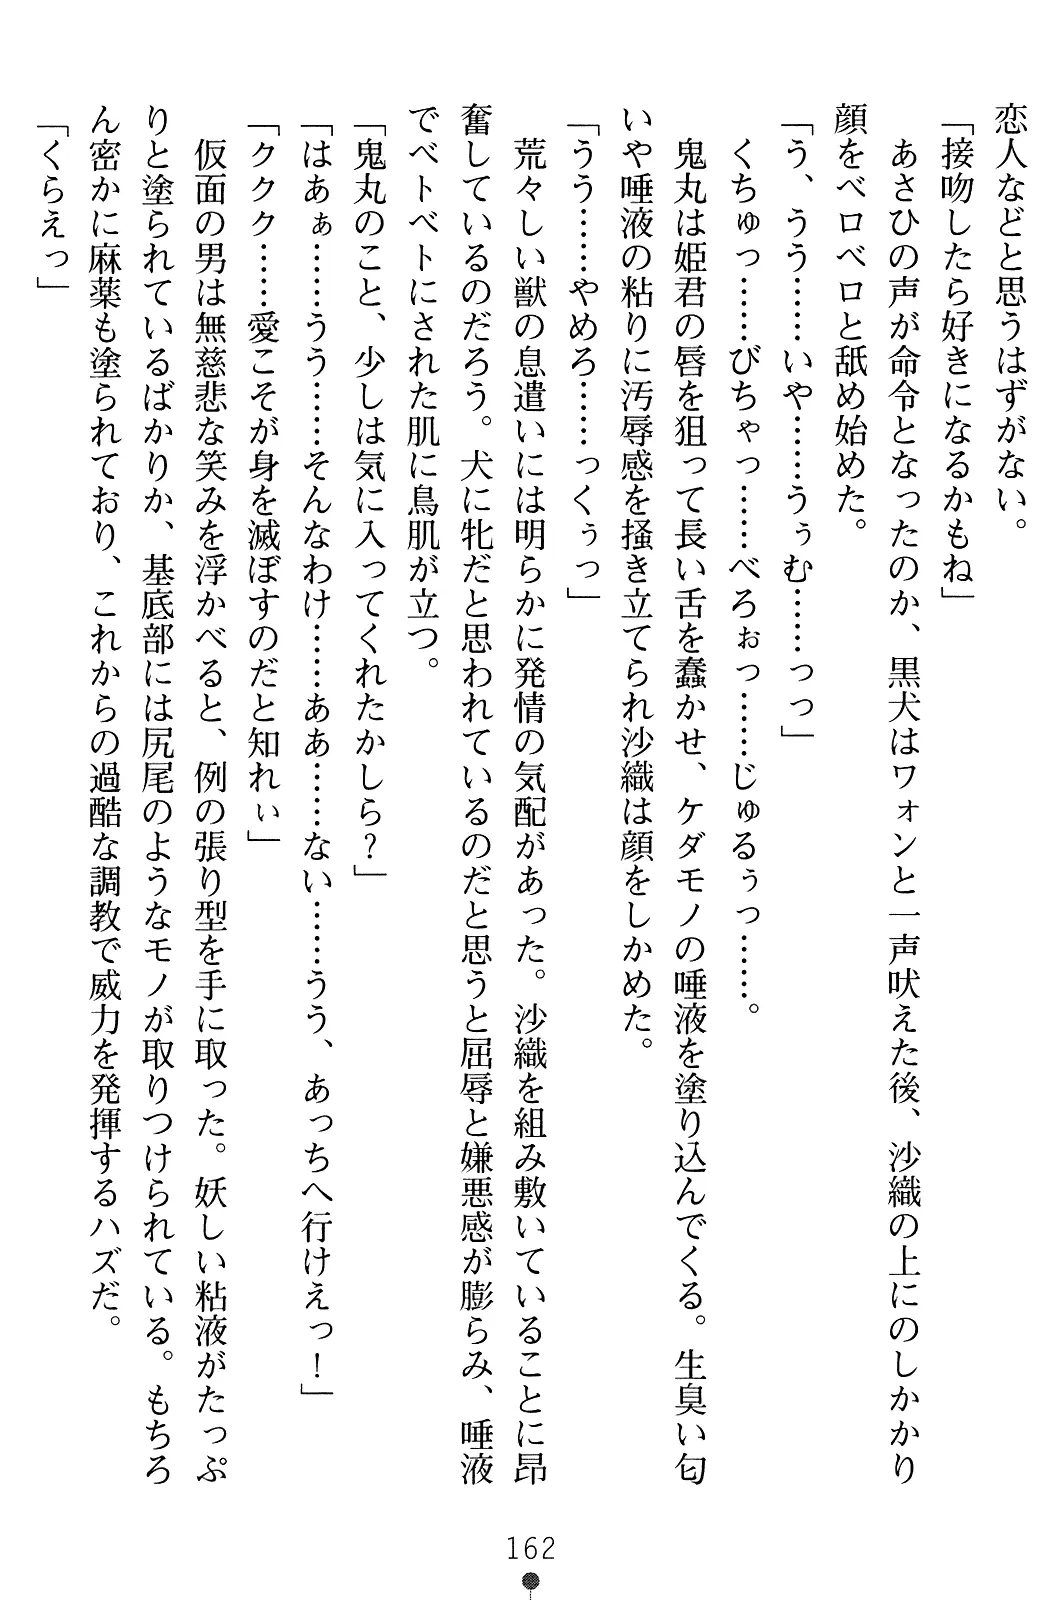 恋人などと思うはずがない。
「接吻したら好きになるかもね」
　あさひの声が命令となったのか、黒犬はワォンと一声吠えた後、沙織の上にのしかかり
顔をベロベロと舐め始めた。
「う、うう……いや……うぅむ……っっ」
　くちゅっ……びちゃっ……べろぉっ……じゅるぅっ……。
　鬼丸は姫君の唇を狙って長い舌を蠢かせ、ケダモノの唾液を塗り込んでくる。生臭い匂
いや唾液の粘りに汚辱感を掻き立てられ沙織は顔をしかめた。
「うう……やめろ……っくぅっ」
　荒々しい獣の息遣いには明らかに発情の気配があった。沙織を組み敷いていることに昂
奮しているのだろう。犬に牝だと思われているのだと思うと屈辱と嫌悪感が膨らみ、唾液
でベトベトにされた肌に鳥肌が立つ。
「鬼丸のこと、少しは気に入ってくれたかしら？」
「はあぁ……うう……そんなわけ……ああ……ない……うう、あっちへ行けえっ！」
「ククク……愛こそが身を滅ぼすのだと知れぃ」
　仮面の男は無慈悲な笑みを浮かべると、例の張り型を手に取った。妖しい粘液がたっぷ
りと塗られているばかりか、基底部には尻尾のようなモノが取りつけられている。もちろ
ん密かに麻薬も塗られており、これからの過酷な調教で威力を発揮するハズだ。
「くらえっ」
162